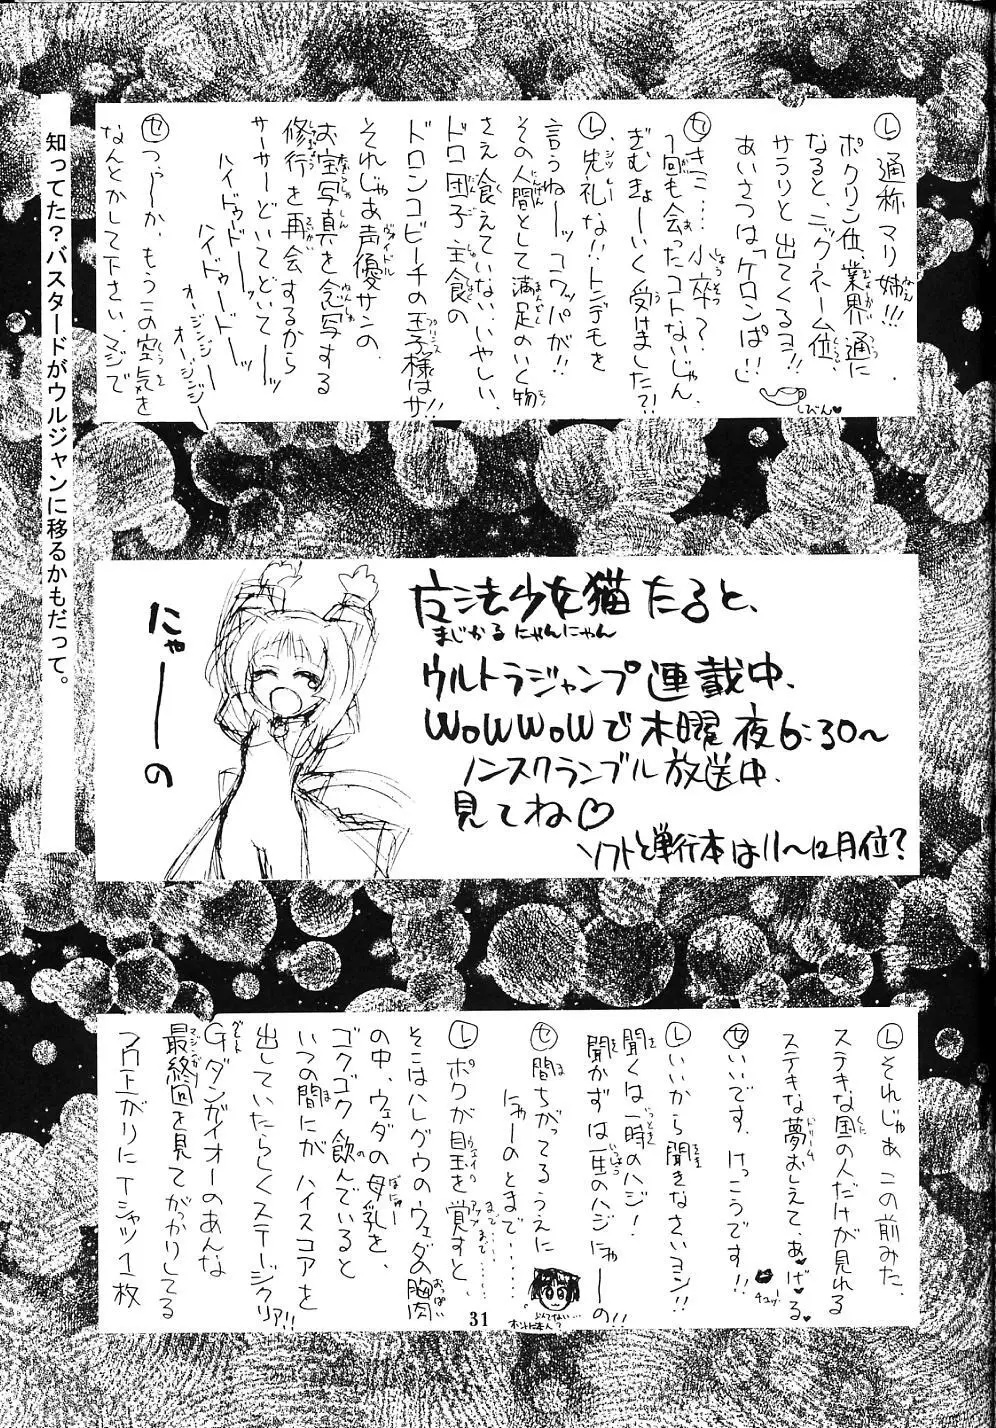 Ⓛ通称マリ姉!!!
ポクリン位業界通に
なると、ニックネーム位、
サラリと出てくるヨ!!
あいさつは「ケロンぱ!!」
しびん♥
Ⓢき…小卒?
1回も会ったコトないじゃん
ぎむきょーいく受けました?!
Ⓛ失礼な!!トンデモを
言うねーッコワッパが!!
その人間として満足のいく物
さえ食えていない、いやしい、
ドロ団子主食の
ドロンコビーチの王子様はサ!!
それじゃあ声優サンの、
お宝写真を念写する
修行を再会するから
サーサーどいてどいてーッ
ハイドゥードーーッ
ハイドゥードドーー
オージンジー
オージンジー
Ⓢつぅーか、もうこの空気を
なんとかして下さい、マジで
知ってた?バスタードがウルジャンに移るかもだって。
にゃーーの
魔法少女猫たると、
まじかるにゃんにゃん
ウルトラジャンプ連載中、
WOWWOWで木曜夜6:30〜
ノンスクランブル放送中、
見てね♡
ソフトと単行本は11〜12月位?
Ⓛそれじゃあこの前みた、
ステキな国の人だけが見れる
ステキな夢おしえて、あ♥げ♥る♥
チュッ!
Ⓢいいです、けっこうです!!
Ⓛいいから聞きなさいヨン!!
聞くは一時のハジ!
聞かずは一生のハジにゃーーの!!
Ⓢ間ちがってるうえに
にゃーのとまで……
Ⓛポクが目玉を覚すと、
そこはハレグウのウェダの胸肉
の中、ウェダの母乳を、
ゴクゴク飲んでいると
いつの間にかハイスコアを
出していたらしくステージクリア!!
Gダンガイオーのあんな
最終回を見てがっかりしてる
フロ上がりにTシャツ1枚
31